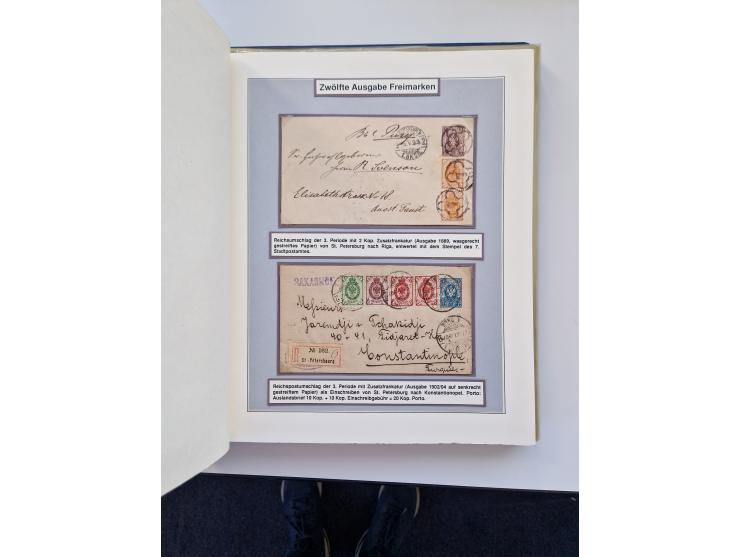 Zwölfte Ausgabe Freimarken
Elisabethstrasse No 18.
Reichsumschlag der 3. Periode mit 2 Kop. Zusatzfrankatur (Ausgabe 1889, waagerecht
gestreiftes Papier) von St. Petersburg nach Riga, entwertet mit dem Stempel des 7.
Stadtpostamtes.
ЗАКАЗНОЕ
Messieurs
Jaremdji & Tchakidji
40-41,
Constantinople
Turquie
No 982.
St-Petersbourg
Reichspostumschlag der 3. Periode mit Zusatzfrankatur (Ausgabe 1902/04 auf senkrecht
gestreiftem Papier) als Einschreiben von St. Petersburg nach Konstantionopel. Porto:
Auslandsbrief 10 Kop. + 10 Kop. Einschreibgebühr = 20 Kop. Porto.